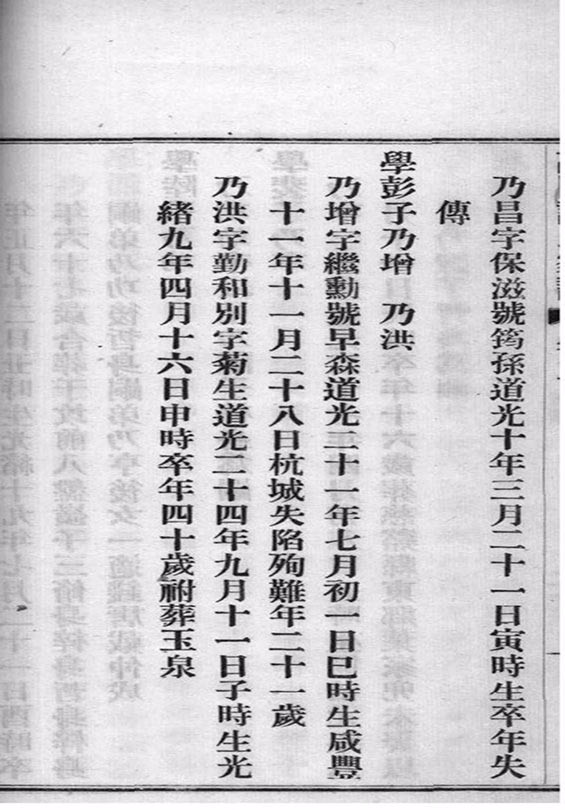 乃昌字保滋號筠孫道光十年三月二十一日寅時生卒年失
傳
學彭子乃增 乃洪
乃增字繼勳號早森道光二十一年七月初一日巳時生咸豐
十一年十一月二十八日杭城失陷殉難年二十一歲
乃洪字勤和別字菊生道光二十四年九月十一日子時生光
緒九年四月十六日申時卒年四十歲祔葬玉泉